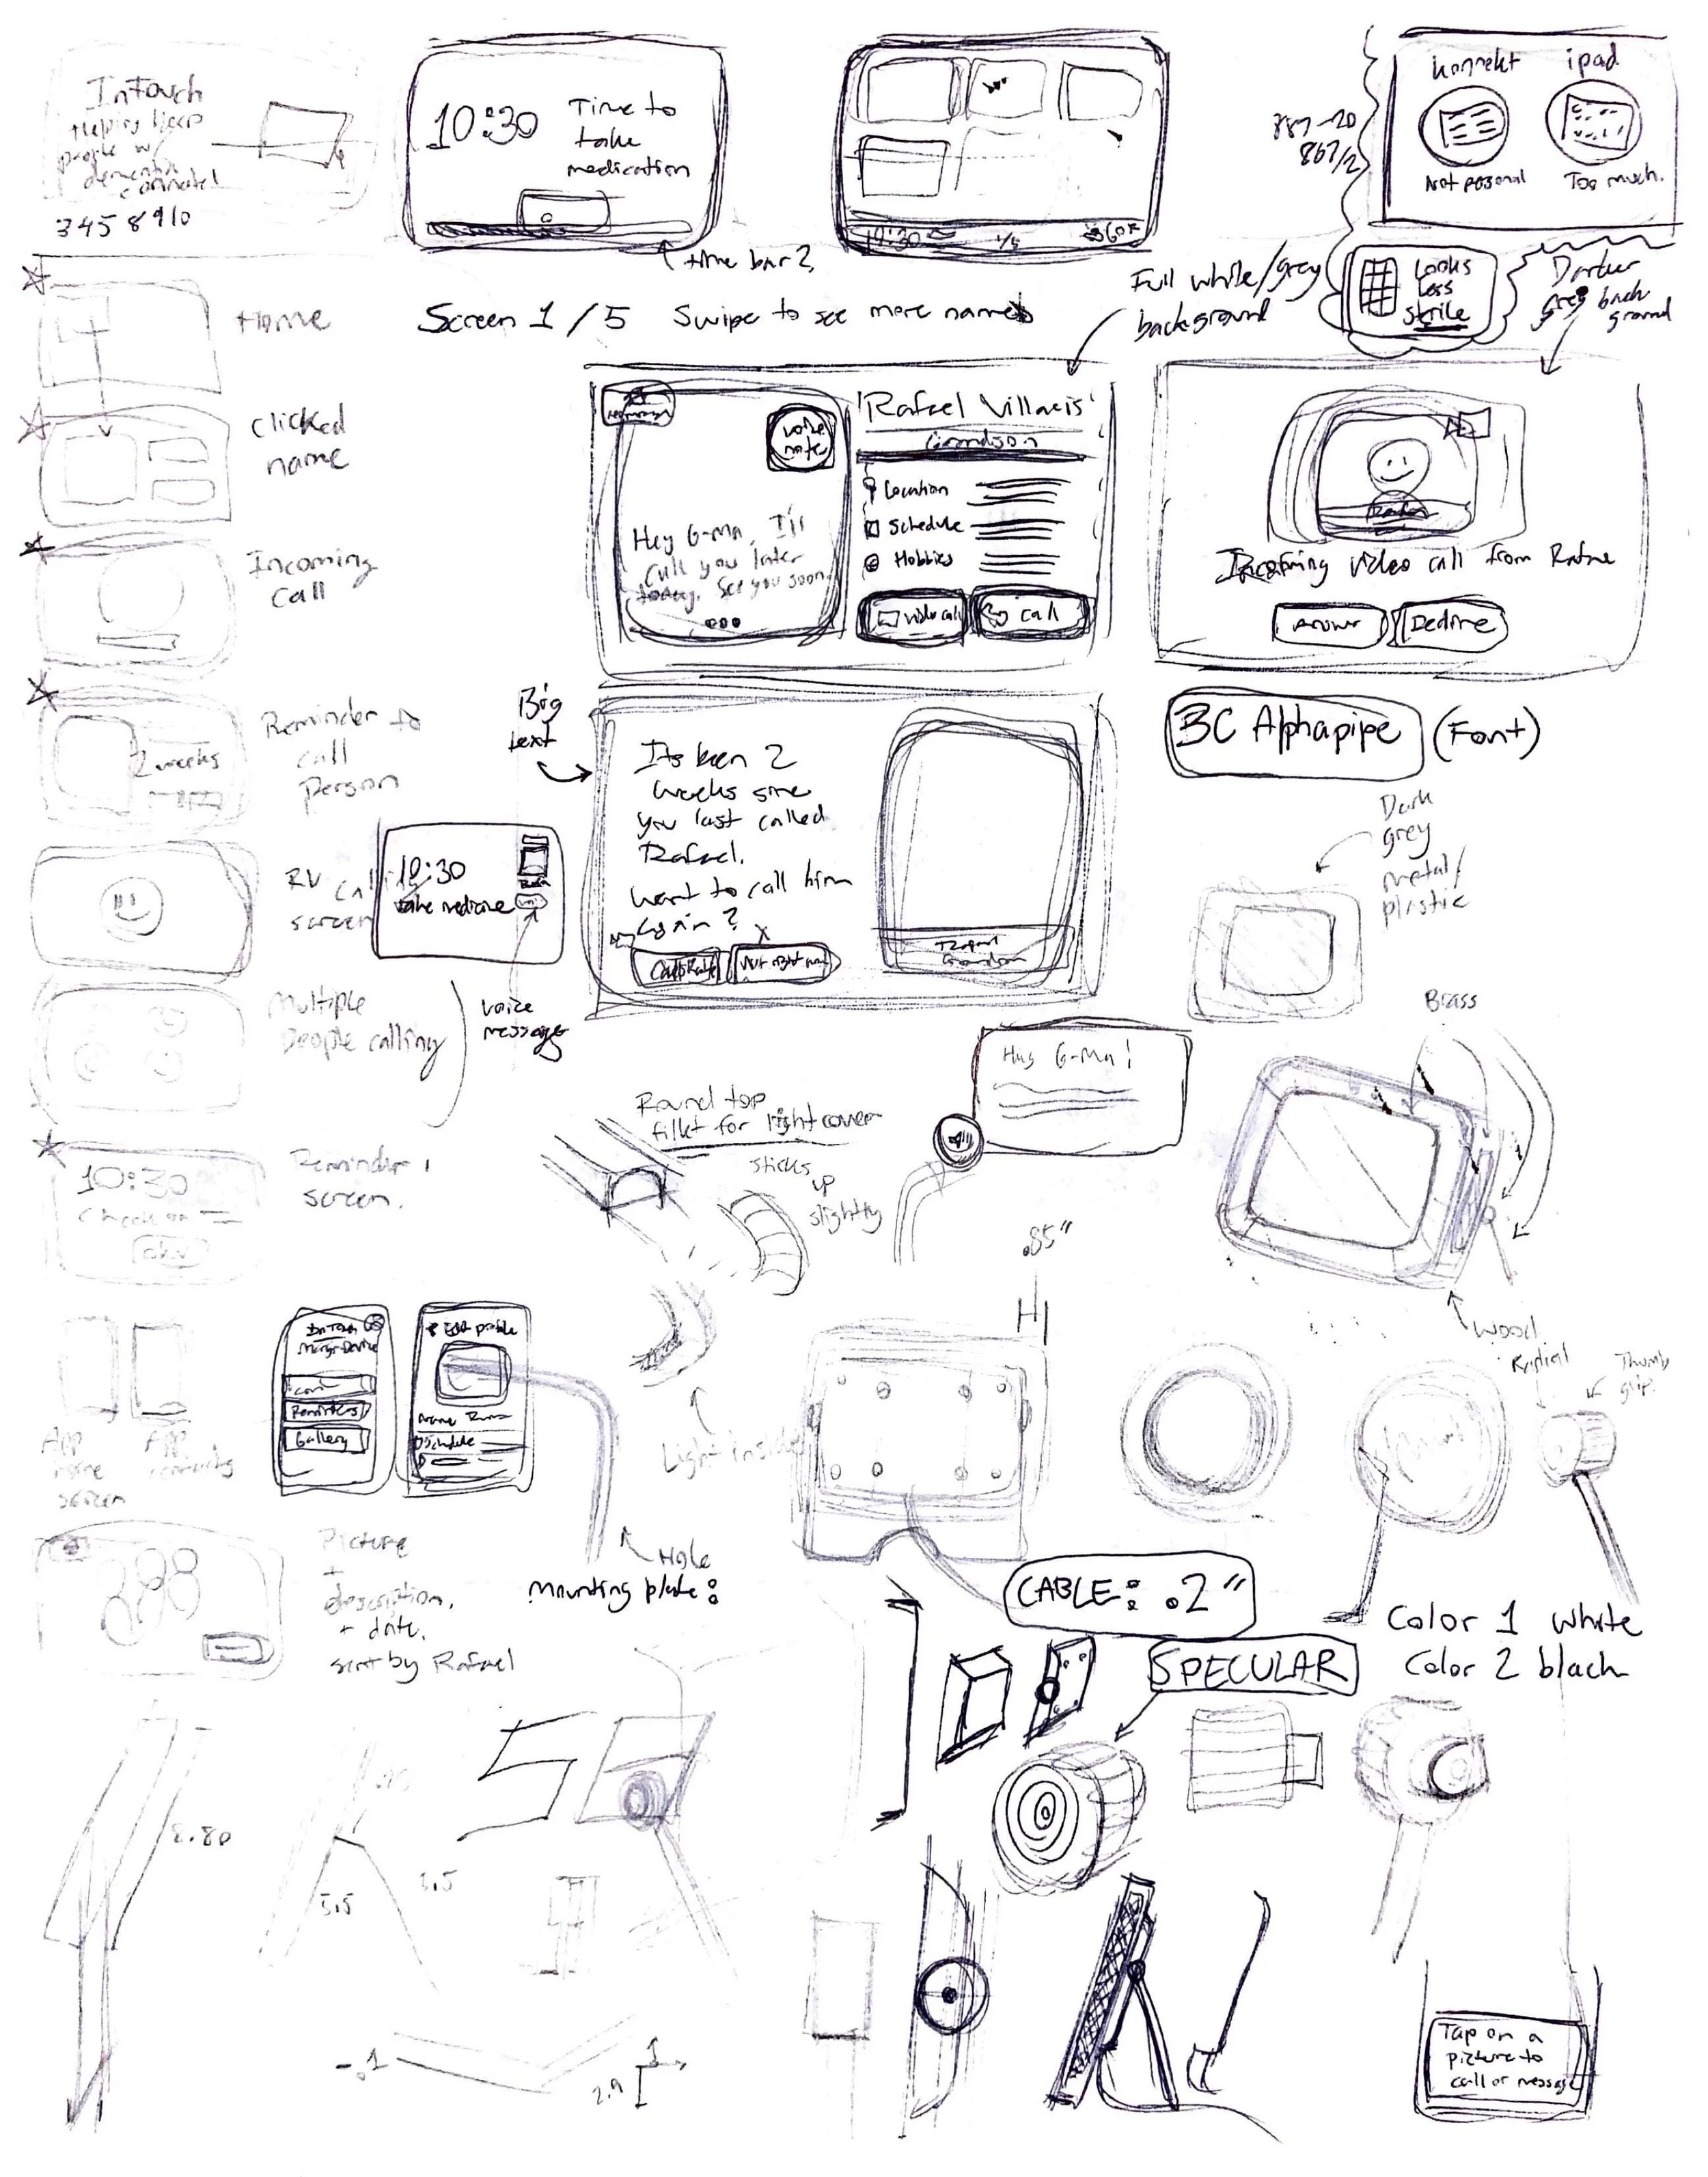 InTouch
Helping keep
people w/
dementia
connected
3 4 5 8 9 10
10:30
Time to
take
medication
time bar?
10:30
1/5
60°
konnekt
ipad
Not pesonal
Too much.
887-20
867/2
Looks
Less
strile
Full white/grey
background
Darker
grey back
ground
Screen 1 / 5 Swipe to see more names
Home
Clicked
name
Incoming
Call
Reminder to
call
Person
2 weeks
RV
screen
Multiple
People calling
10:30
Reminder
screen.
Voice
note
Hey G-Ma, I'll
call you later
today. See you soon.
'Rafael Villacis'
Grandson
Location
Schedule
Hobbies
Video call
Call
Rafael
Incoming video call from Rafael
Answer
Decline
Big
text
Its been 2
weeks sine
you last called
Rafael.
Want to call him
again?
Not right now
Rafael
Grandson
BC Alphapipe
(Font)
10:30
take medicine
voice
message
Dark
grey
metal/
plastic
Brass
Wood
Hey G-Ma!
Round top
fillet for light cover
sticks
up
slightly
.85"
Light inside
InTouch
Reminders
Gallery
Edit profile
Schedule
App
home
screen
App
Radial
Thumb
grip.
Hole
mounting plate:
Picture
+
description,
+ date,
sent by Rafael
CABLE: .2"
SPECULAR
Color 1 white
Color 2 black
8.80
5.5
1.5
-.1
2.9
1
Tap on a
picture to
call or message